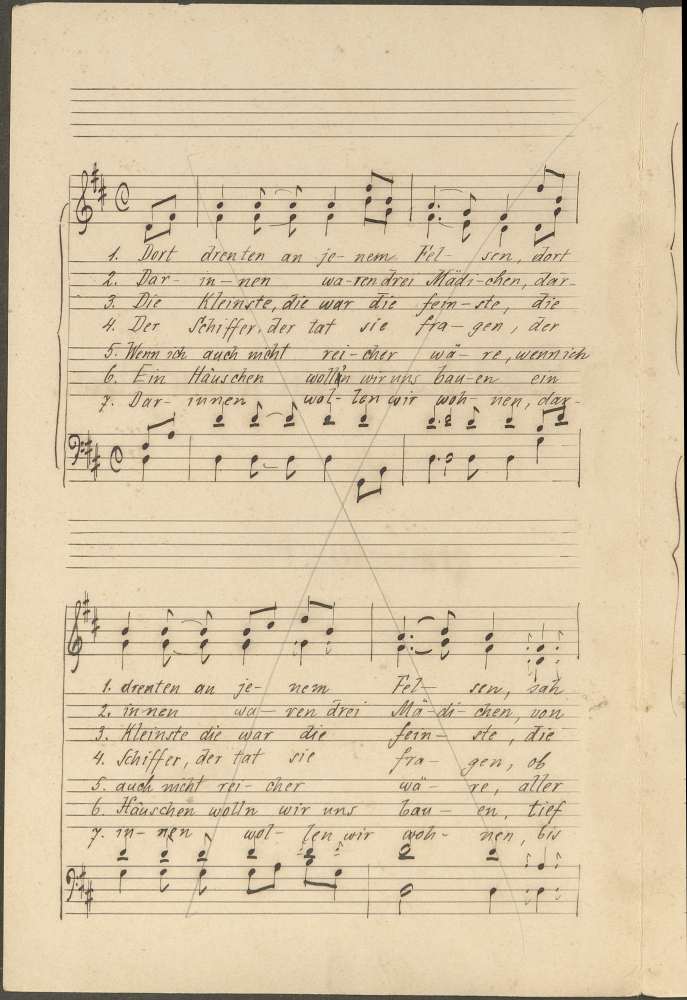 1. Dort drenten an je- nem Fel- sen, dort
2. Dar- in- nen wa- ren drei Mädi- chen, dar-
3. Die Kleinste, die war die fein- ste, die
4. Der Schiffer, der tat sie fra- gen, der
5. Wenn ich auch nicht rei- cher wä- re, wenn ich
6. Ein Häuschen wolln wir uns bau- en ein
7. Dar- innen wol- len wir woh- nen, dar-
1. drenten an je- nem Fel- sen, sah
2. innen wa- ren drei Mä- di- chen, von
3. Kleinste die war die fein- ste, die
4. Schiffer, der tat sie fra- gen, ob
5. auch nicht rei- cher wä- re, aller
6. Häuschen wolln wir uns bau- en, tief
7. in- nen wol- len wir woh- nen, bis